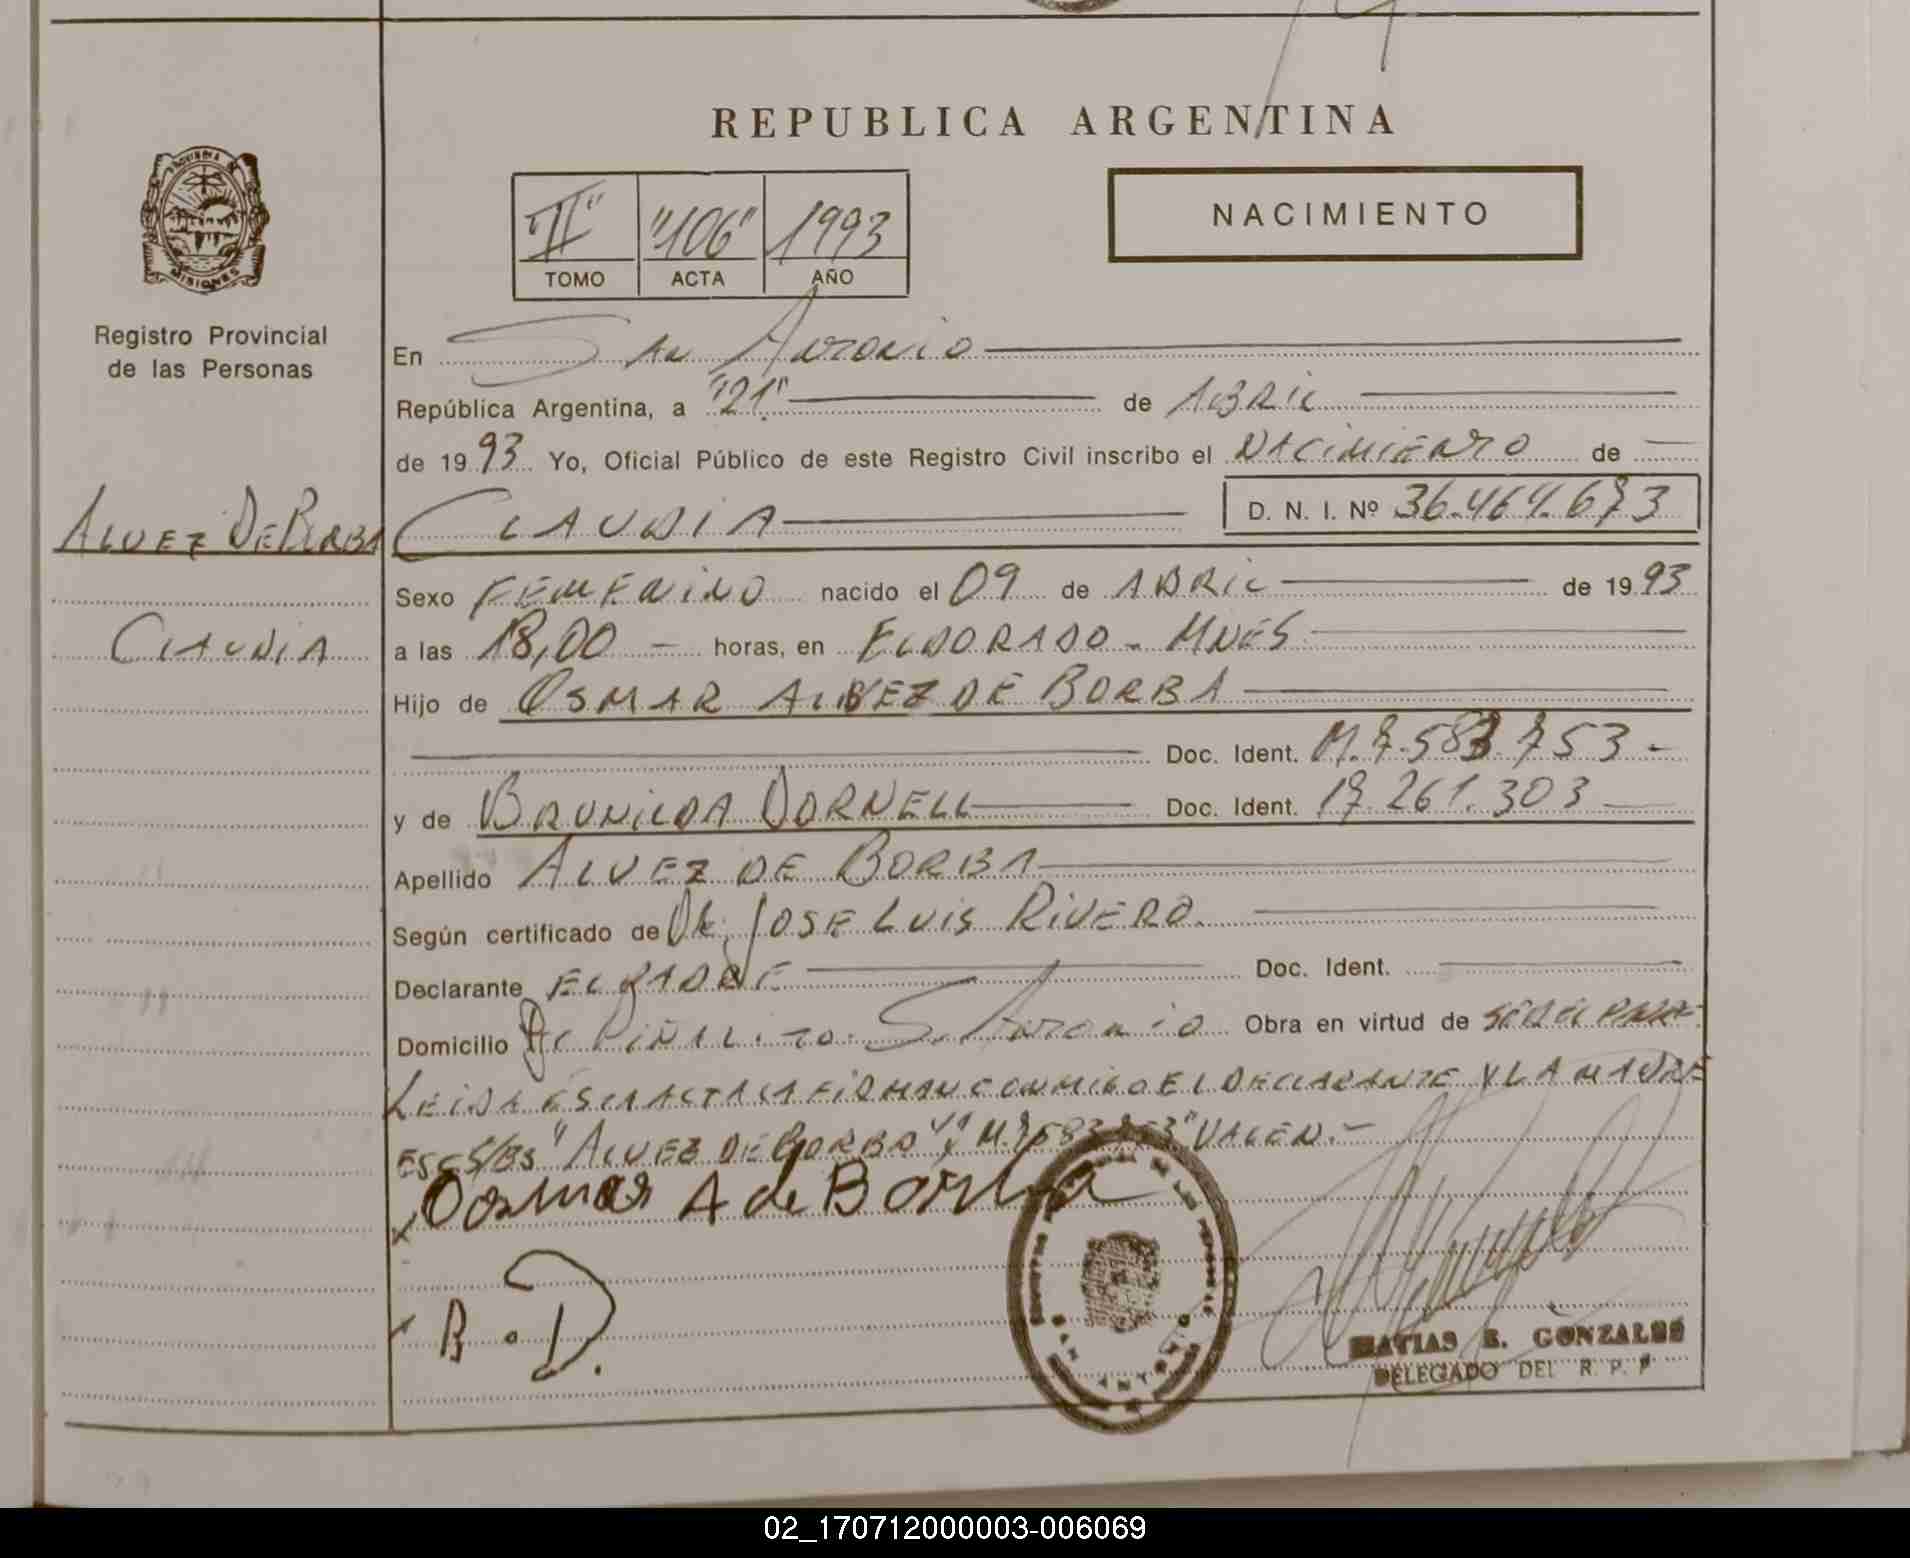 REPUBLICA ARGENTINA
PROVINCIA DE
MISIONES
Registro Provincial
de las Personas
"II" "106" 1993
TOMO ACTA AÑO
NACIMIENTO
En San Antonio
República Argentina, a "21" de ABRIL
de 1993 Yo, Oficial Público de este Registro Civil inscribo el NACIMIENTO de
ALVEZ DE BORBA
CLAUDIA
CLAUDIA D. N. I. Nº 36.464.673
Sexo FEMENINO nacido el 09 de ABRIL de 1993
a las 18,00 horas, en ELDORADO - MNES
Hijo de OSMAR ALVEZ DE BORBA
Doc. Ident. M.7.583.753-
y de BRUNILDA DORNELL Doc. Ident. 17.261.303
Apellido ALVEZ DE BORBA
Según certificado de DR. JOSE LUIS RIVERO.
Declarante EL PADRE Doc. Ident.
Domicilio PIÑALITO. S. Antonio Obra en virtud de SER EL PADRE
LEIDA ESTA ACTA LA FIRMAN CONMIGO EL DECLARANTE Y LA MADRE
ES S/BS "ALVEZ DE BORBA" Y "M.7583753" VALEN.-
x Osmar A de Borba
x B. D.
SAN ANTONIO
MATIAS E. GONZALES
DELEGADO DEL R. P. P
02_170712000003-006069